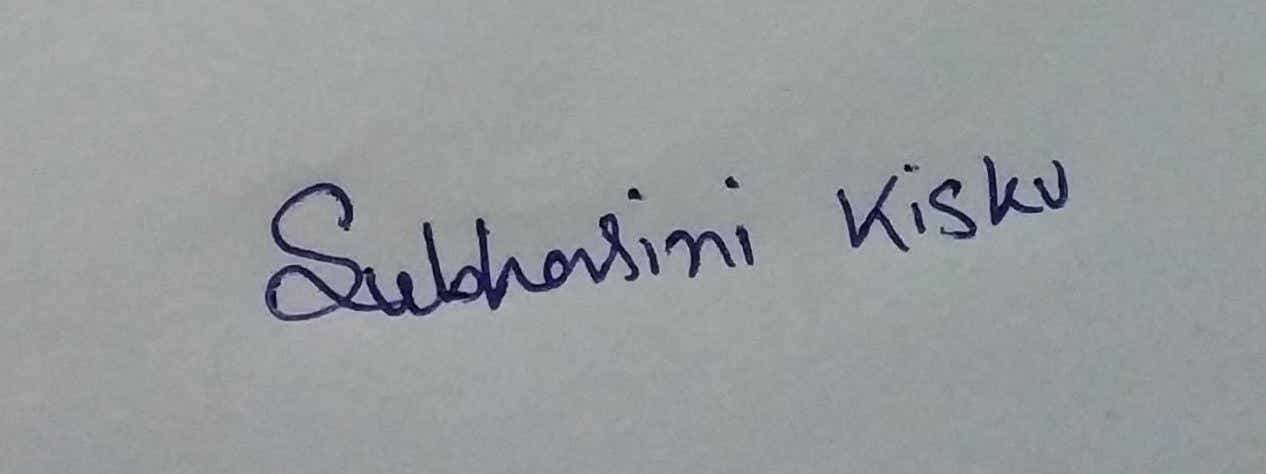 Subhasini Kisku